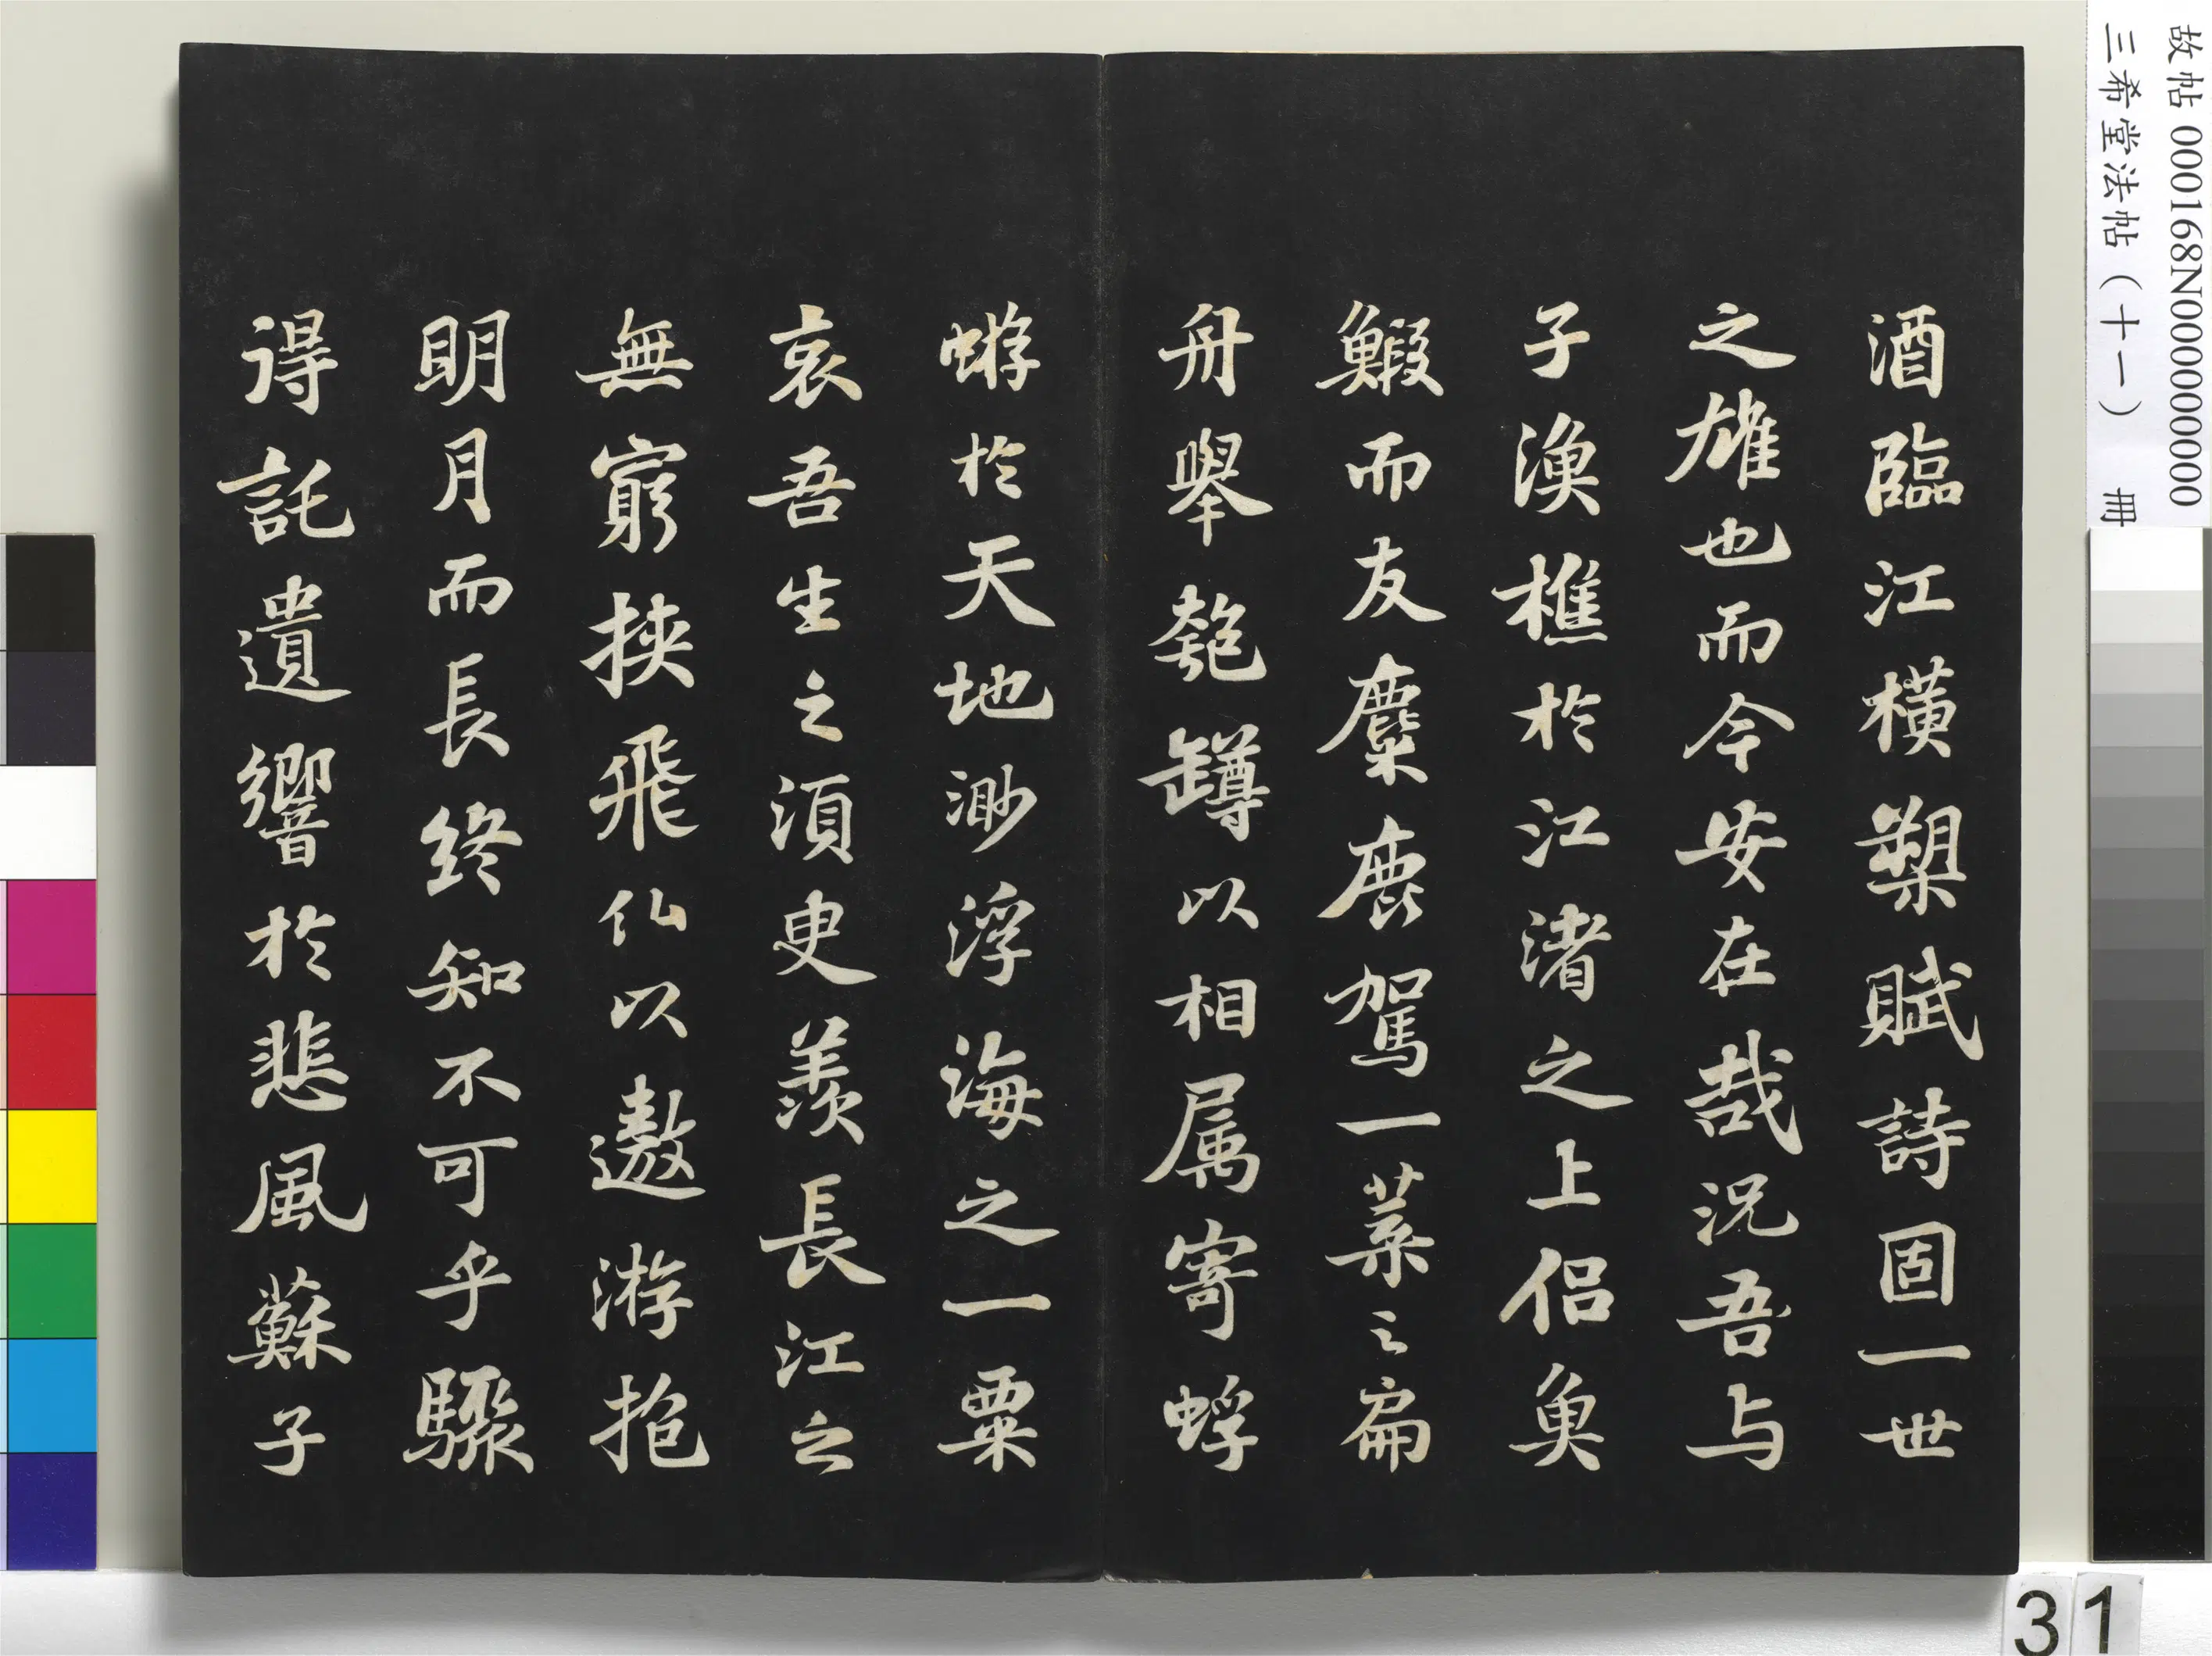 酒臨江橫槊賦詩固一世
之雄也而今安在哉況吾与
子漁樵於江渚之上侣魚
鰕而友麋鹿駕一葉之扁
舟舉匏罇以相属寄蜉
蝣於天地渺浮海之一粟
哀吾生之湏臾羡長江之
無窮挟飛仙以遨游抱
明月而長終知不可乎驟
得託遺響於悲風蘇子
故帖 000168N000000000
三希堂法帖（十一） 冊
31